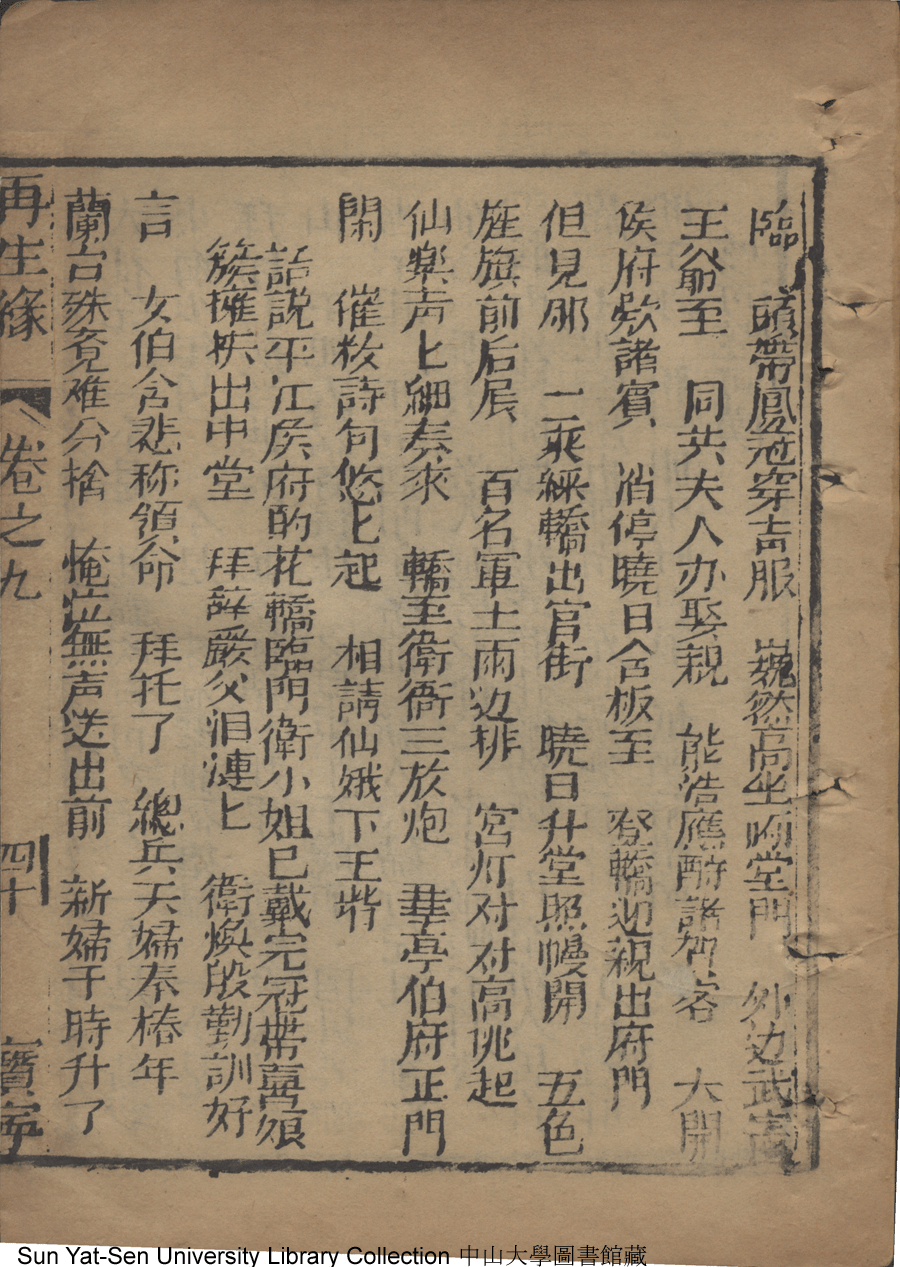 臨　頭帶鳳冠穿吉服　巍然高坐画堂門　外边武憲
王爺至　同共夫人办娶親　能浩應酧諸賀客　大開
侯府欵諸賓　消停曉日合板至　登轎迎親出府門
但見那　二乘綵轎出官街　曉日升堂照幔開　五色
旌旗前后展　百名軍士兩边排　宮灯对对高挑起
仙樂声匕細奏來　轎至衛衙三放炮　亭伯府正門
閑　催妝詩句悠匕起　相請仙娥下王堦
話說平江侯府的花轎臨門衛小姐已戴完冠帶喜娘
簇擁扶出中堂　拜辭嚴父泪漣匕　衛煥殷勤訓好
言　女伯含悲称領命　拜托了　總兵夫婦奉椿年
蘭台殊竟难分捨　掩泣無声送出前　新婦于時升了
再生緣　卷之九　四十　寳寧
Sun Yat-Sen University Library Collection 中山大學圖書館藏